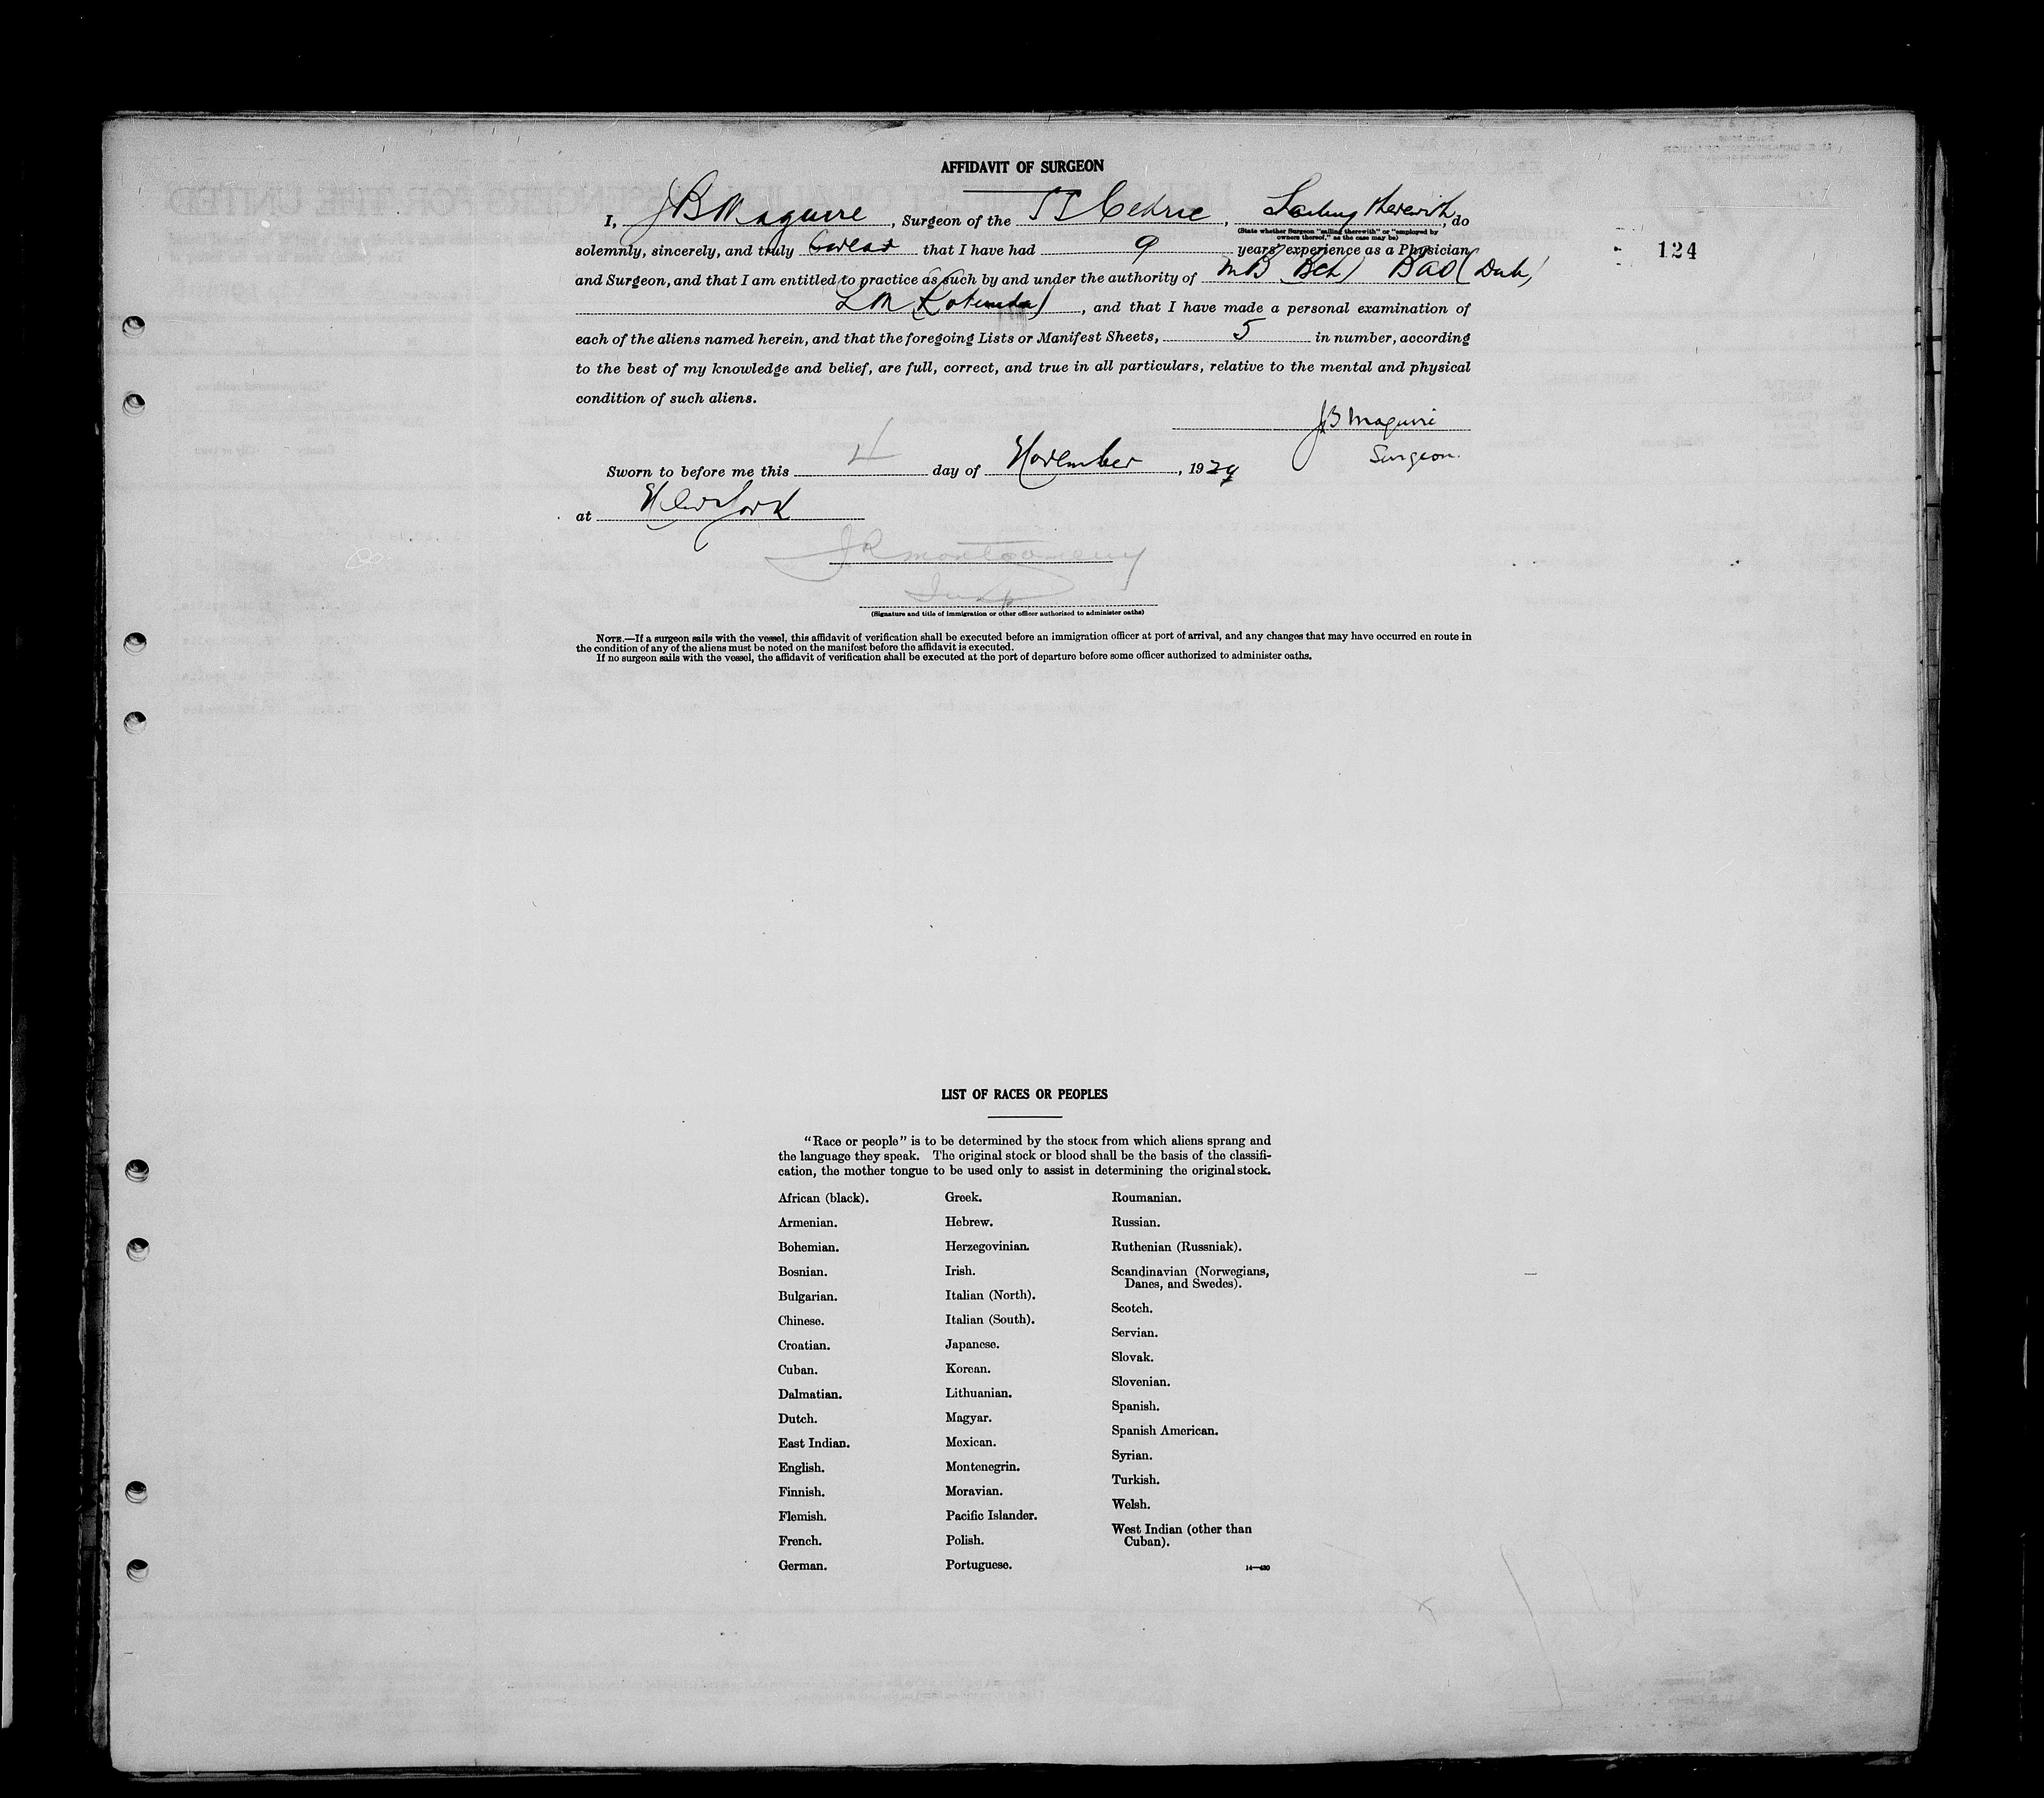 AFFIDAVIT OF SURGEON
I, J B Maguire, Surgeon of the SS Cedric, Sailing therewith, do
(State whether Surgeon "sailing therewith" or "employed by
owners thereof," as the case may be)
124
solemnly, sincerely, and truly swear that I have had 9 years' experience as a Physician
and Surgeon, and that I am entitled to practice as such by and under the authority of MB BCh BAO (Dub)
LM (Rotunda), and that I have made a personal examination of
each of the aliens named herein, and that the foregoing Lists or Manifest Sheets, 5 in number, according
to the best of my knowledge and belief, are full, correct, and true in all particulars, relative to the mental and physical
condition of such aliens.
J B Maguire
Surgeon.
Sworn to before me this 4 day of November, 1929
at New York
J R Montgomery
Insp
(Signature and title of immigration or other officer authorized to administer oaths)
NOTE.—If a surgeon sails with the vessel, this affidavit of verification shall be executed before an immigration officer at port of arrival, and any changes that may have occurred en route in
the condition of any of the aliens must be noted on the manifest before the affidavit is executed.
If no surgeon sails with the vessel, the affidavit of verification shall be executed at the port of departure before some officer authorized to administer oaths.
LIST OF RACES OR PEOPLES
"Race or people" is to be determined by the stock from which aliens sprang and
the language they speak. The original stock or blood shall be the basis of the classifi-
cation, the mother tongue to be used only to assist in determining the original stock.
African (black).
Armenian.
Bohemian.
Bosnian.
Bulgarian.
Chinese.
Croatian.
Cuban.
Dalmatian.
Dutch.
East Indian.
English.
Finnish.
Flemish.
French.
German.
Greek.
Hebrew.
Herzegovinian.
Irish.
Italian (North).
Italian (South).
Japanese.
Korean.
Lithuanian.
Magyar.
Mexican.
Montenegrin.
Moravian.
Pacific Islander.
Polish.
Portuguese.
Roumanian.
Russian.
Ruthenian (Russniak).
Scandinavian (Norwegians,
Danes, and Swedes).
Scotch.
Servian.
Slovak.
Slovenian.
Spanish.
Spanish American.
Syrian.
Turkish.
Welsh.
West Indian (other than
Cuban).